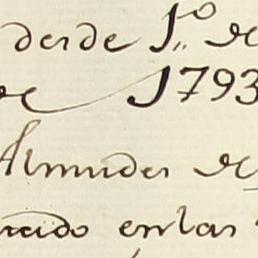 desde 1.º de
de 1793
Almudes de
cido en las